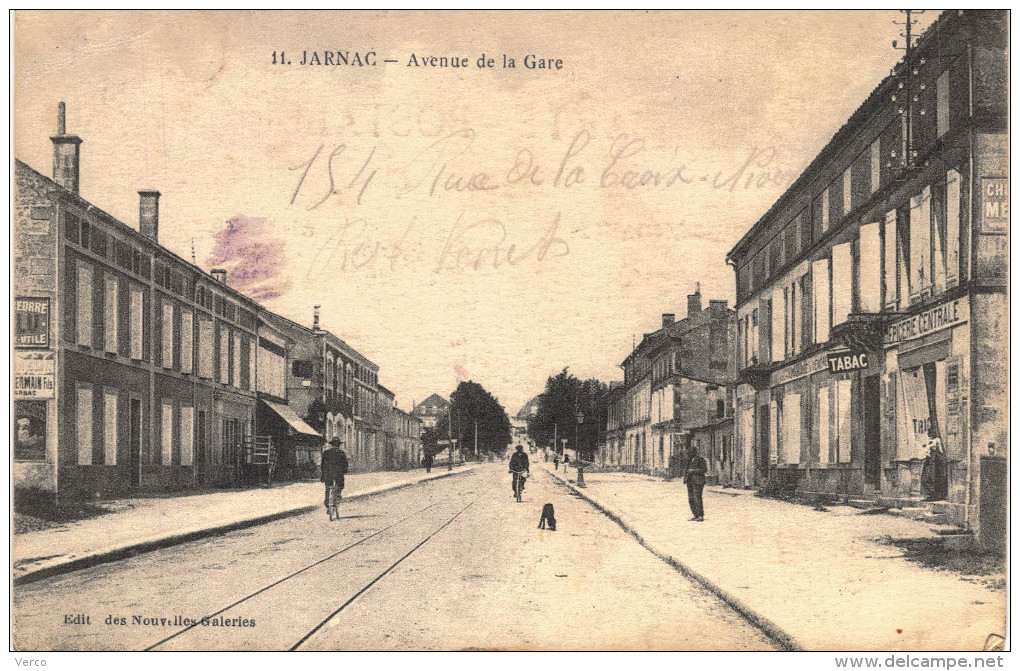 11. JARNAC — Avenue de la Gare
154 Rue de la Croix
TABAC
EPICERIE CENTRALE
LU
UTILE
ERMAIN Fils
ARNAC
CH
ME
Edit des Nouvelles Galeries
Verco
www.delcampe.net